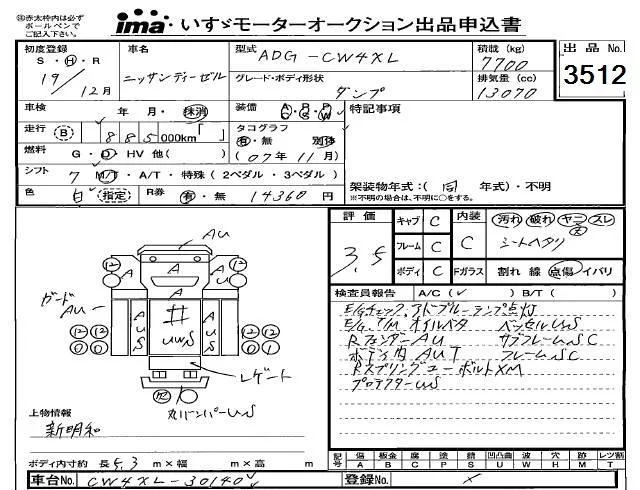 ㊟赤太枠内は必ず
ボールペンで
ご記入下さい。
ima いすゞモーターオークション出品申込書
初度登録 車名 型式 ADG-CW4XL 積載 (kg) 7700 出品No.
S・H・R 19/12月 ニッサンディーゼル グレード・ボディ形状 ダンプ 排気量 (cc) 13070 3512
車検 年 月・抹消 装備 A/C P/S P/W 特記事項
走行 (B) 885,000km「 」 タコグラフ 有・無 別体
燃料 G・D HV 他( ) (07年11月)
シフト 7 M/T・A/T・特殊(2ペダル・3ペダル) 架装物年式:(同 年式)・不明
色 白 (指定) R券 有・無 14360円 ※不明の場合は、不明に〇をする。
評価 3.5 キャブ C 内装 C 汚れ 破れ ヤニ スレ
フレーム C シートヘタリ
ボディ C Fガラス 割れ 線 点傷 イバリ
AU
A
A
A
12
12
ガード
AU
AUS
#
UWS
AUS
12
12
12
12
レゲート
カバンパーUS
検査員報告 A/C(✓) B/T( )
E/Gチェック、アドブルーランプ点灯
E/G、T/M オイルベタ ベッセルUS
RフェンダーAU サブフレームSC
ボディ内AUT フレームSC
RスプリングユーボルトXM
プロテクターUS
上物情報
新明和
ボディ内寸約 長 5.3 m×幅 m×高 m
記号 傷 板金 腐 塗 錆 凹凸曲 波 穴 跡 レツ割
A B C P S U W H M T
車台No. CW4XL-30140 登録No. ×